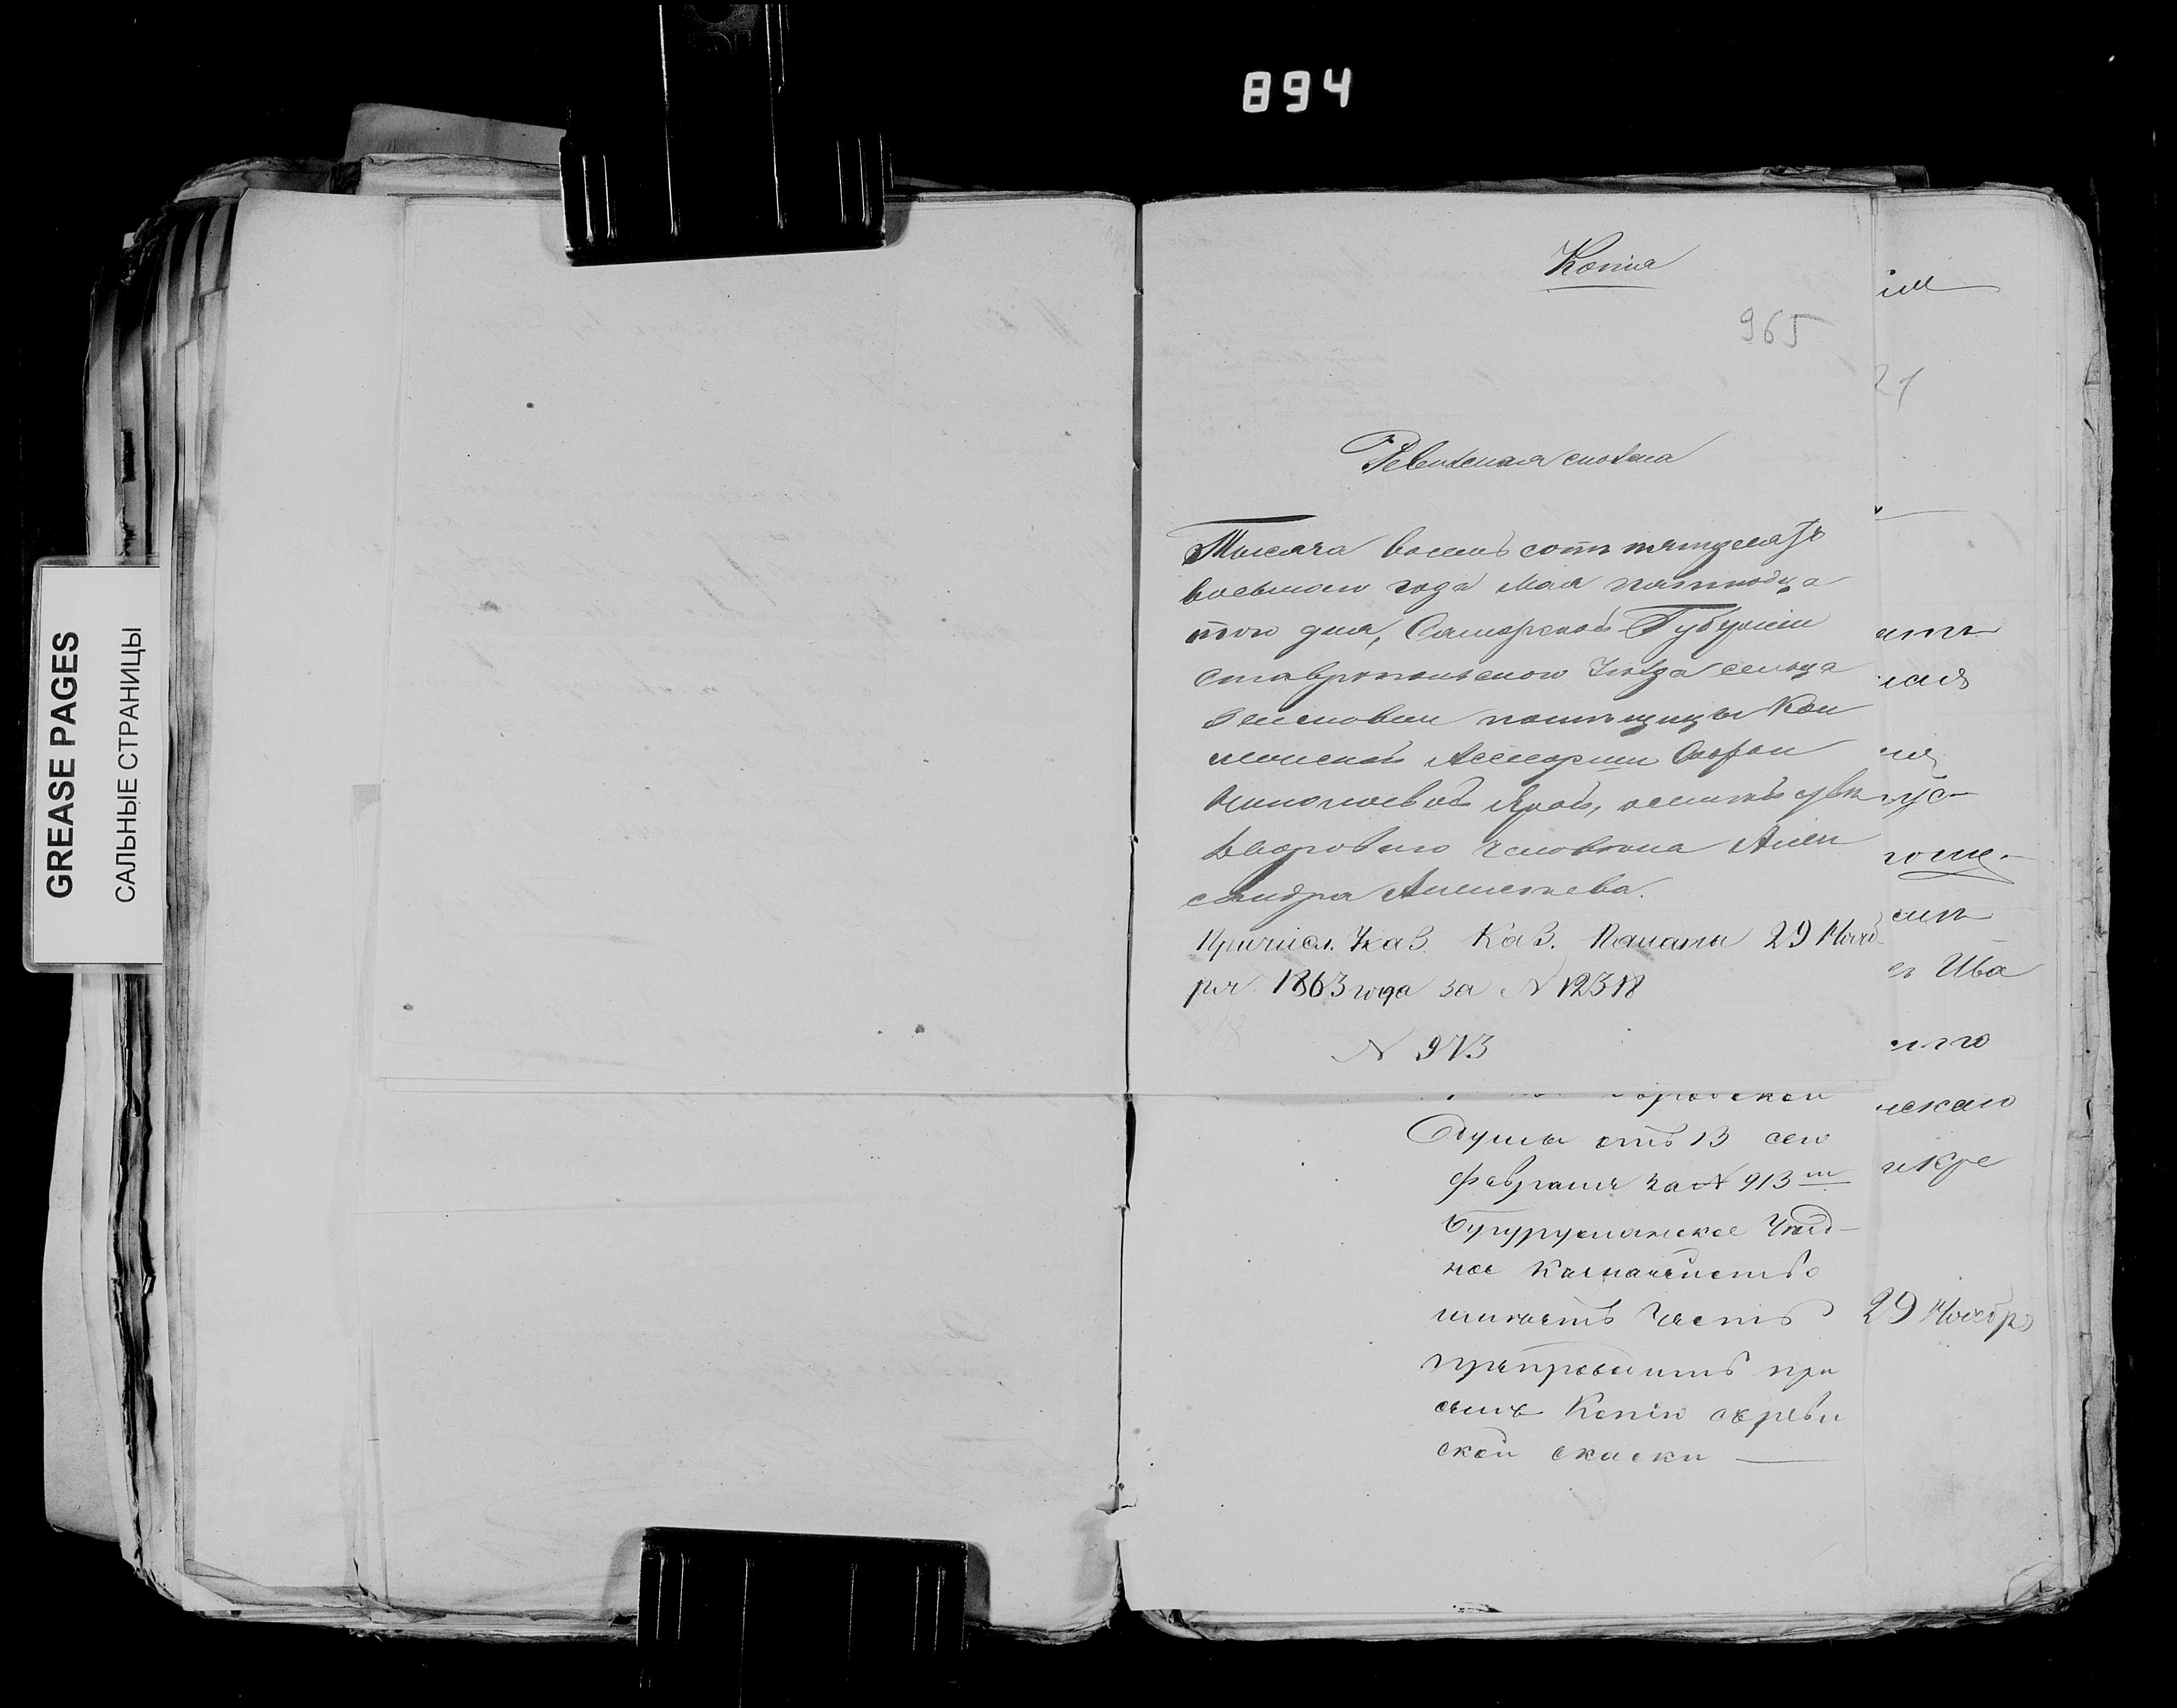 894
GREASE PAGES
САЛЬНЫЕ СТРАНИЦЫ
Копія
965
Ревизская сказка
Тысяча восемь сотъ пятьдесятъ
восьмаго года Мая пятнадца
таго дня, Самарской Губерніи
Ставропольскаго Уѣзда сельца
помѣщицы Кол
лежской Ассесорши
двороваго человѣка Алек
сандра Алексѣева.
Причисл. Указ. Каз. Палаты 29 Нояб
ря 1863 года за N 12318
N 973
Думы отъ 13 сего
февраля за N 913 м
Бугурусланское Уѣзд
ное Казначейство
имѣетъ честь
препроводить при
семъ Копію съ реви
ской скаски
21
Ива
29 Ноябр